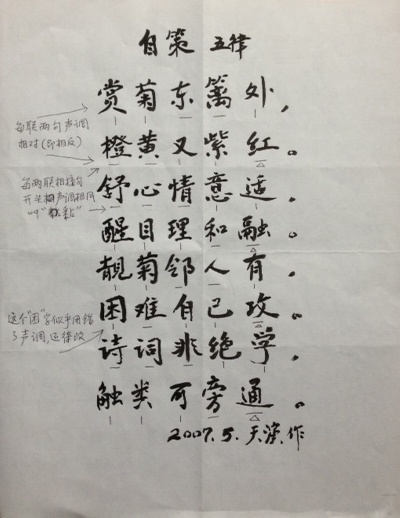 自策 五律
赏菊东篱外，
橙黄又紫红。
舒心情意适，
醒目理和融。
靓菊邻人有，
困难自己攻。
诗词非绝学，
触类可旁通。
2007.5.天滨作
每联两句声调
相对(即相反)
每两联相接句
开头相声调相同
叫"粘"
这个"困"字似乎用错
了声调，还得改